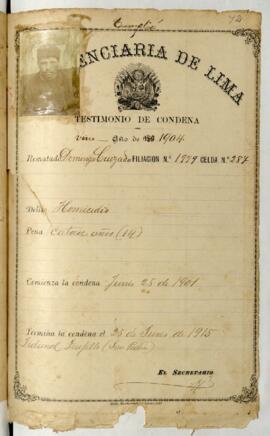 Cumplió
72
PENITENCIARIA DE LIMA
TESTIMONIO DE CONDENA
de 1904
Rematado Domingo Cruzado FILIACION N.° 1959 CELDA N.° 287
Delito Homicidio
Pena Catorce años (14)
Comienza la condena Junio 25 de 1901
Termina la condena el 25 de Junio de 1915
Tribunal Trujillo
EL SECRETARIO